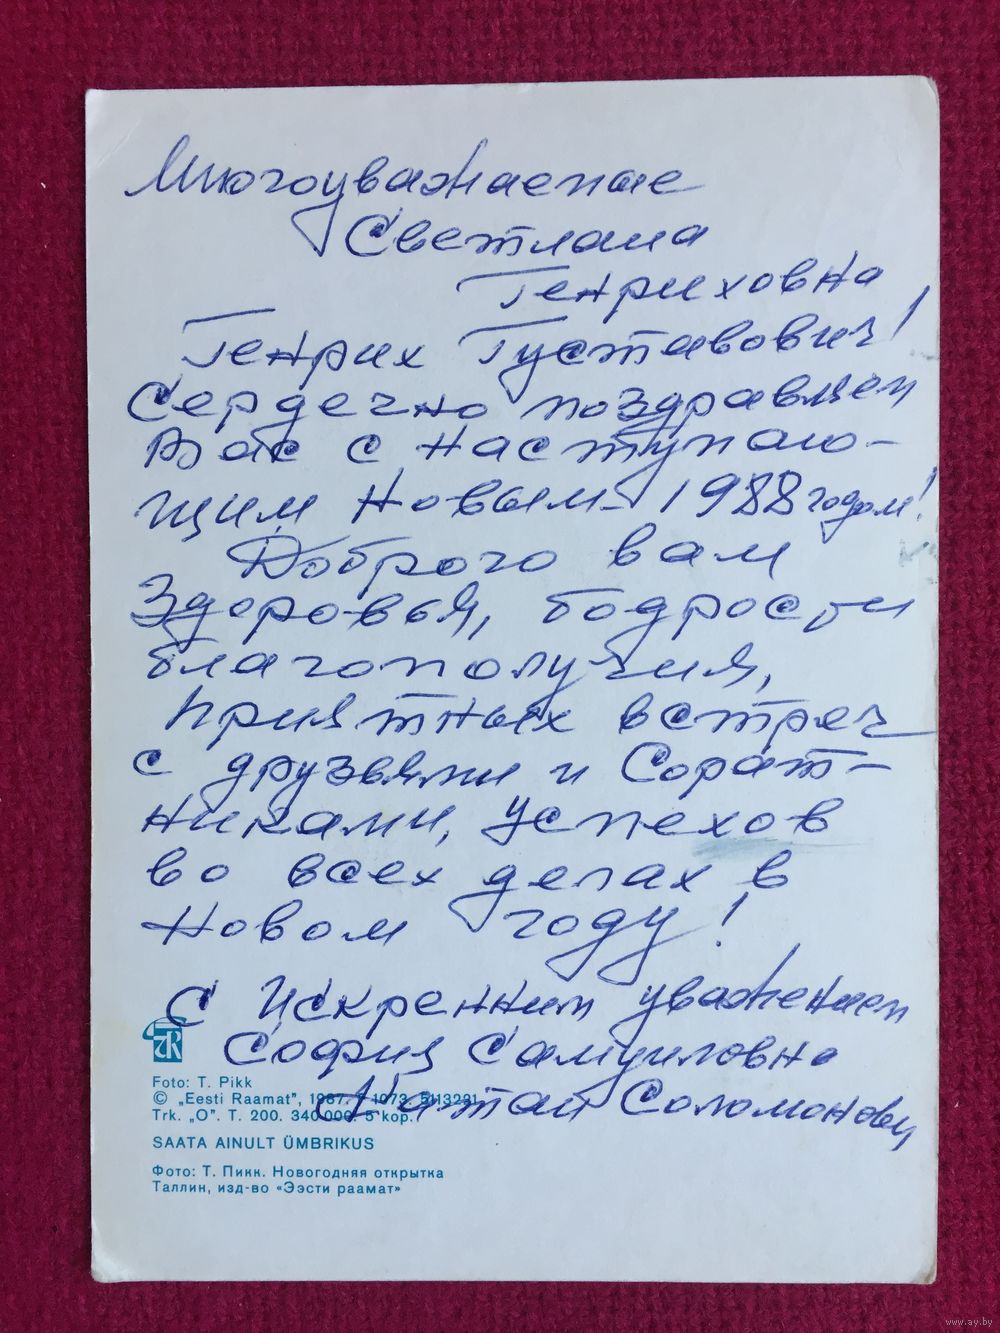 Многоуважаемые
Светлана
Генриховна
Генрих Густавович!
Сердечно поздравляем
Вас с наступаю-
щим Новым 1988 годом!
Доброго вам
здоровья, бодрости
благополучия,
приятных встреч
с друзьями и сорат-
никами, успехов
во всех делах в
Новом году!
С искренним уважением
София Самуиловна
Натан Соломонович
Foto: T. Pikk
© „Eesti Raamat", 1987.
Trk. „O". T. 200. 340 000. 5 kop.
SAATA AINULT ÜMBRIKUS
Фото: Т. Пикк. Новогодняя открытка
Таллин, изд-во «Ээсти раамат»
www.ay.by